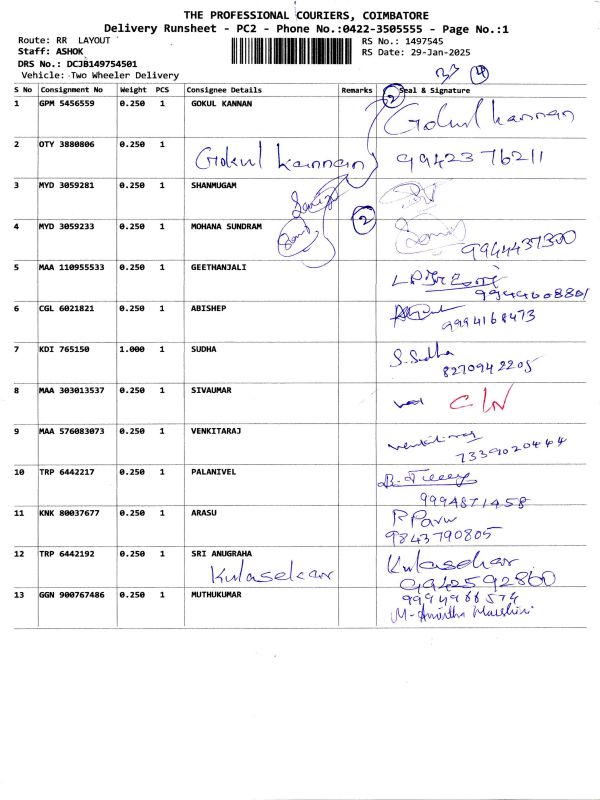 THE PROFESSIONAL COURIERS, COIMBATORE
Delivery Runsheet - PC2 - Phone No.:0422-3505555 - Page No.:1
Route: RR LAYOUT
RS No.: 1497545
Staff: ASHOK
RS Date: 29-Jan-2025
DRS No.: DCJB149754501
Vehicle: Two Wheeler Delivery
33 4
S No Consignment No Weight PCS Consignee Details Remarks Seal & Signature
2
1 GPM 5456559 0.250 1 GOKUL KANNAN Gokul Kannan
2 OTY 3880806 0.250 1
Gokul Kannan 9942376211
3 MYD 3059281 0.250 1 SHANMUGAM
4 MYD 3059233 0.250 1 MOHANA SUNDRAM 2
9944437300
5 MAA 110955533 0.250 1 GEETHANJALI
9944008801
6 CGL 6021821 0.250 1 ABISHEP
9994168473
7 KDI 765150 1.000 1 SUDHA S. Sudha
8270942205
8 MAA 303013537 0.250 1 SIVAUMAR C/N
9 MAA 576083073 0.250 1 VENKITARAJ venkitaraj
7339020444
10 TRP 6442217 0.250 1 PALANIVEL
9994871458
11 KNK 80037677 0.250 1 ARASU
9843790805
12 TRP 6442192 0.250 1 SRI ANUGRAHA Kulasekar
Kulasekar 9942592860
13 GGN 900767486 0.250 1 MUTHUKUMAR 9994966574
M-